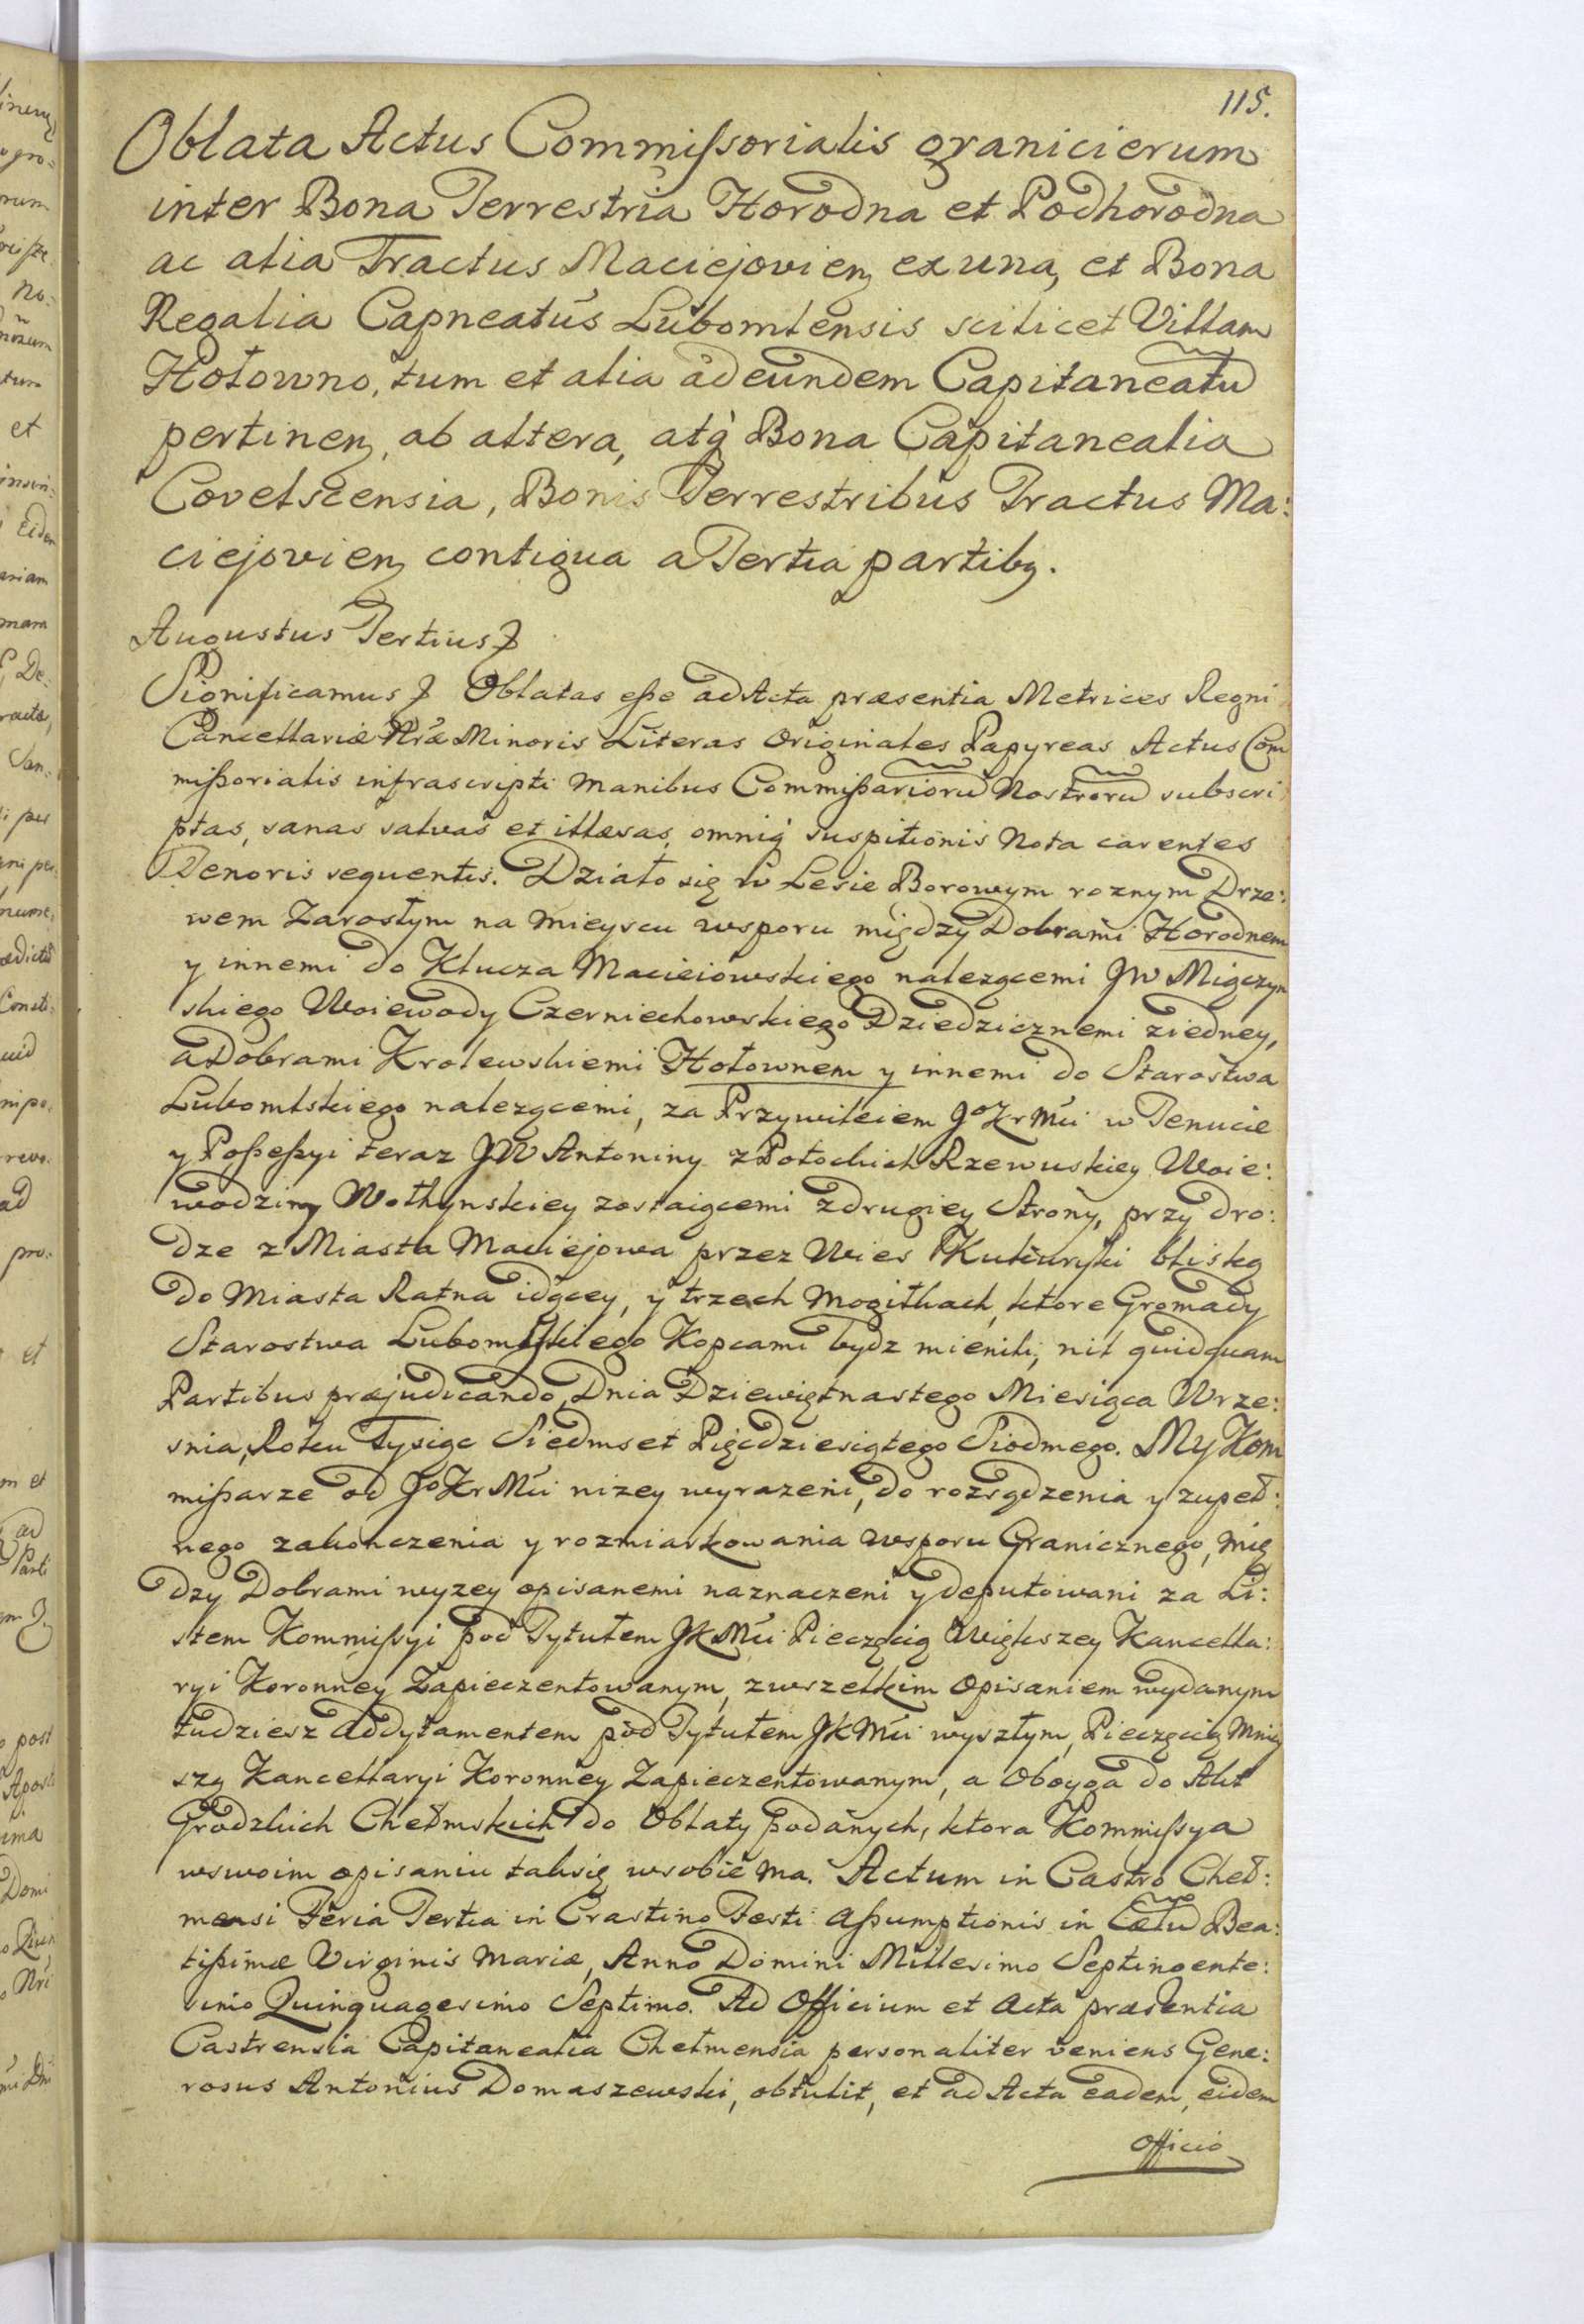 115.
Oblata Actus Commißorialis granicierum
inter Bona Terrestria Horodna et Podhorodna
ac alia Tractus Maciejovien, ex una, et Bona
Regalia Capneatus Lubomlensis scilicet Villam
Hołowno, tum et alia ad eundem Capitaneatu
pertinen, ab altera, atq Bona Capitanealia
Covelscensia, Bonis Terrestribus Tractus Ma:
ciejovien, contigua a Tertia partiby.
Augustus Tertius
Significamus Oblatas eße ad Acta præsentia Metrices Regni
Cancellariæ Nræ Minoris Literas Originales Papyreas Actus Com
mißorialis infrascripti Manibus Commißarioru Nostroru subscri
ptas, sanas salvas et illæsas, omniq suspitionis Nota carentes
Tenoris sequentis. Działo się w Lesie Borowym roznym Drze:
wem Zarosłym na Mieyscu wsporu między Dobrami Horodnem
y innemi do Klucza Macieiowskiego nalezącemi JW Miączyn
skiego Woiewody Czerniechowskiego Dziedzicznemi ziedney,
a Dobrami Krolewskiemi Hołownem y innemi do Starostwa
Lubomlskiego nalezącemi, za Przywileiem JoKrMci w Tenucie
y Poßeßyi teraz JW Antoniny z Potockich Rzewuskiey Woie:
wodziny Wołhynskiey zostaiącemi z drugiey Strony, przy dro:
dze z Miasta Maciejowa przez Wies blisko
do Miasta Ratna idącey, y trzech Mogiłkach, ktore Gromady
Starostwa Lubomlskiego Kopcami bydz mienili, nil quidquam
Partibus præjudicando, Dnia Dziewiętnastego Miesiąca Wrze:
snia, Roku Tysiąc Siedmset Pięcdziesiątego Siodmego. My Kom
mißarze od JoKrMci nizey wyrazeni, do rozsądzenia y zupeł:
nego zakonczenia y rozmiarkowania wsporu Granicznego, mię
dzy Dobrami wyzey opisanemi naznaczeni y deputowani za Li:
stem Kommißyi pod Tytułem JKMci Pieczęcią Większey Kancella:
ryi Koronney Zapieczentowanym, zwszelkim Opisaniem wydanym
tudziesz Addytamentem pod Tytułem JKMci wyszłym, Pieczęcią Mniey
szą Kancellaryi Koronney Zapieczentowanym, a Oboyga do Akt
Grodzkich Chełmskich do Oblaty podanych, ktora Kommißya
wswoim opisaniu taksię wsobie ma. Actum in Castro Cheł:
mensi Feria Tertia in Crastino Festi Aßumptionis in Cælu Bea:
tißimæ Virginis Mariæ, Anno Domini Millesimo Septingente:
simo Quinquagesimo Septimo. Ad Officium et Acta præsentia
Castrensia Capitanealia Chełmensia personaliter veniens Gene:
rosus Antonius Domaszewski, obtulit, et ad Acta eadem, eidem
Officio